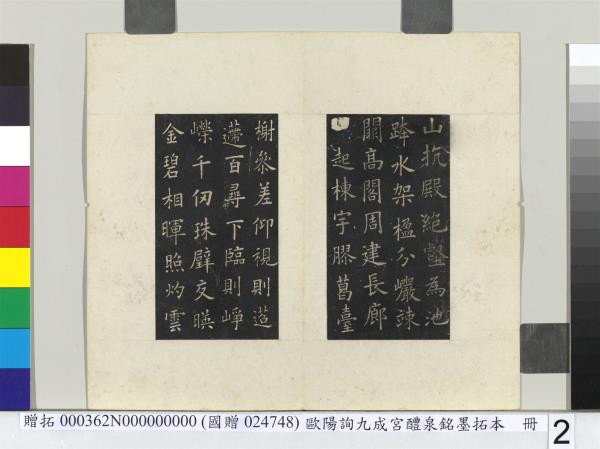 山抗殿絶壑為池
跨水架楹分巖竦
闕高閣周建長廊
起棟宇膠葛臺
榭參差仰視則迢
遰百尋下臨則崢
嶸千仞珠壁交暎
金碧相暉照灼雲
贈拓 000362N000000000 (國贈 024748) 歐陽詢九成宮醴泉銘墨拓本 冊
2